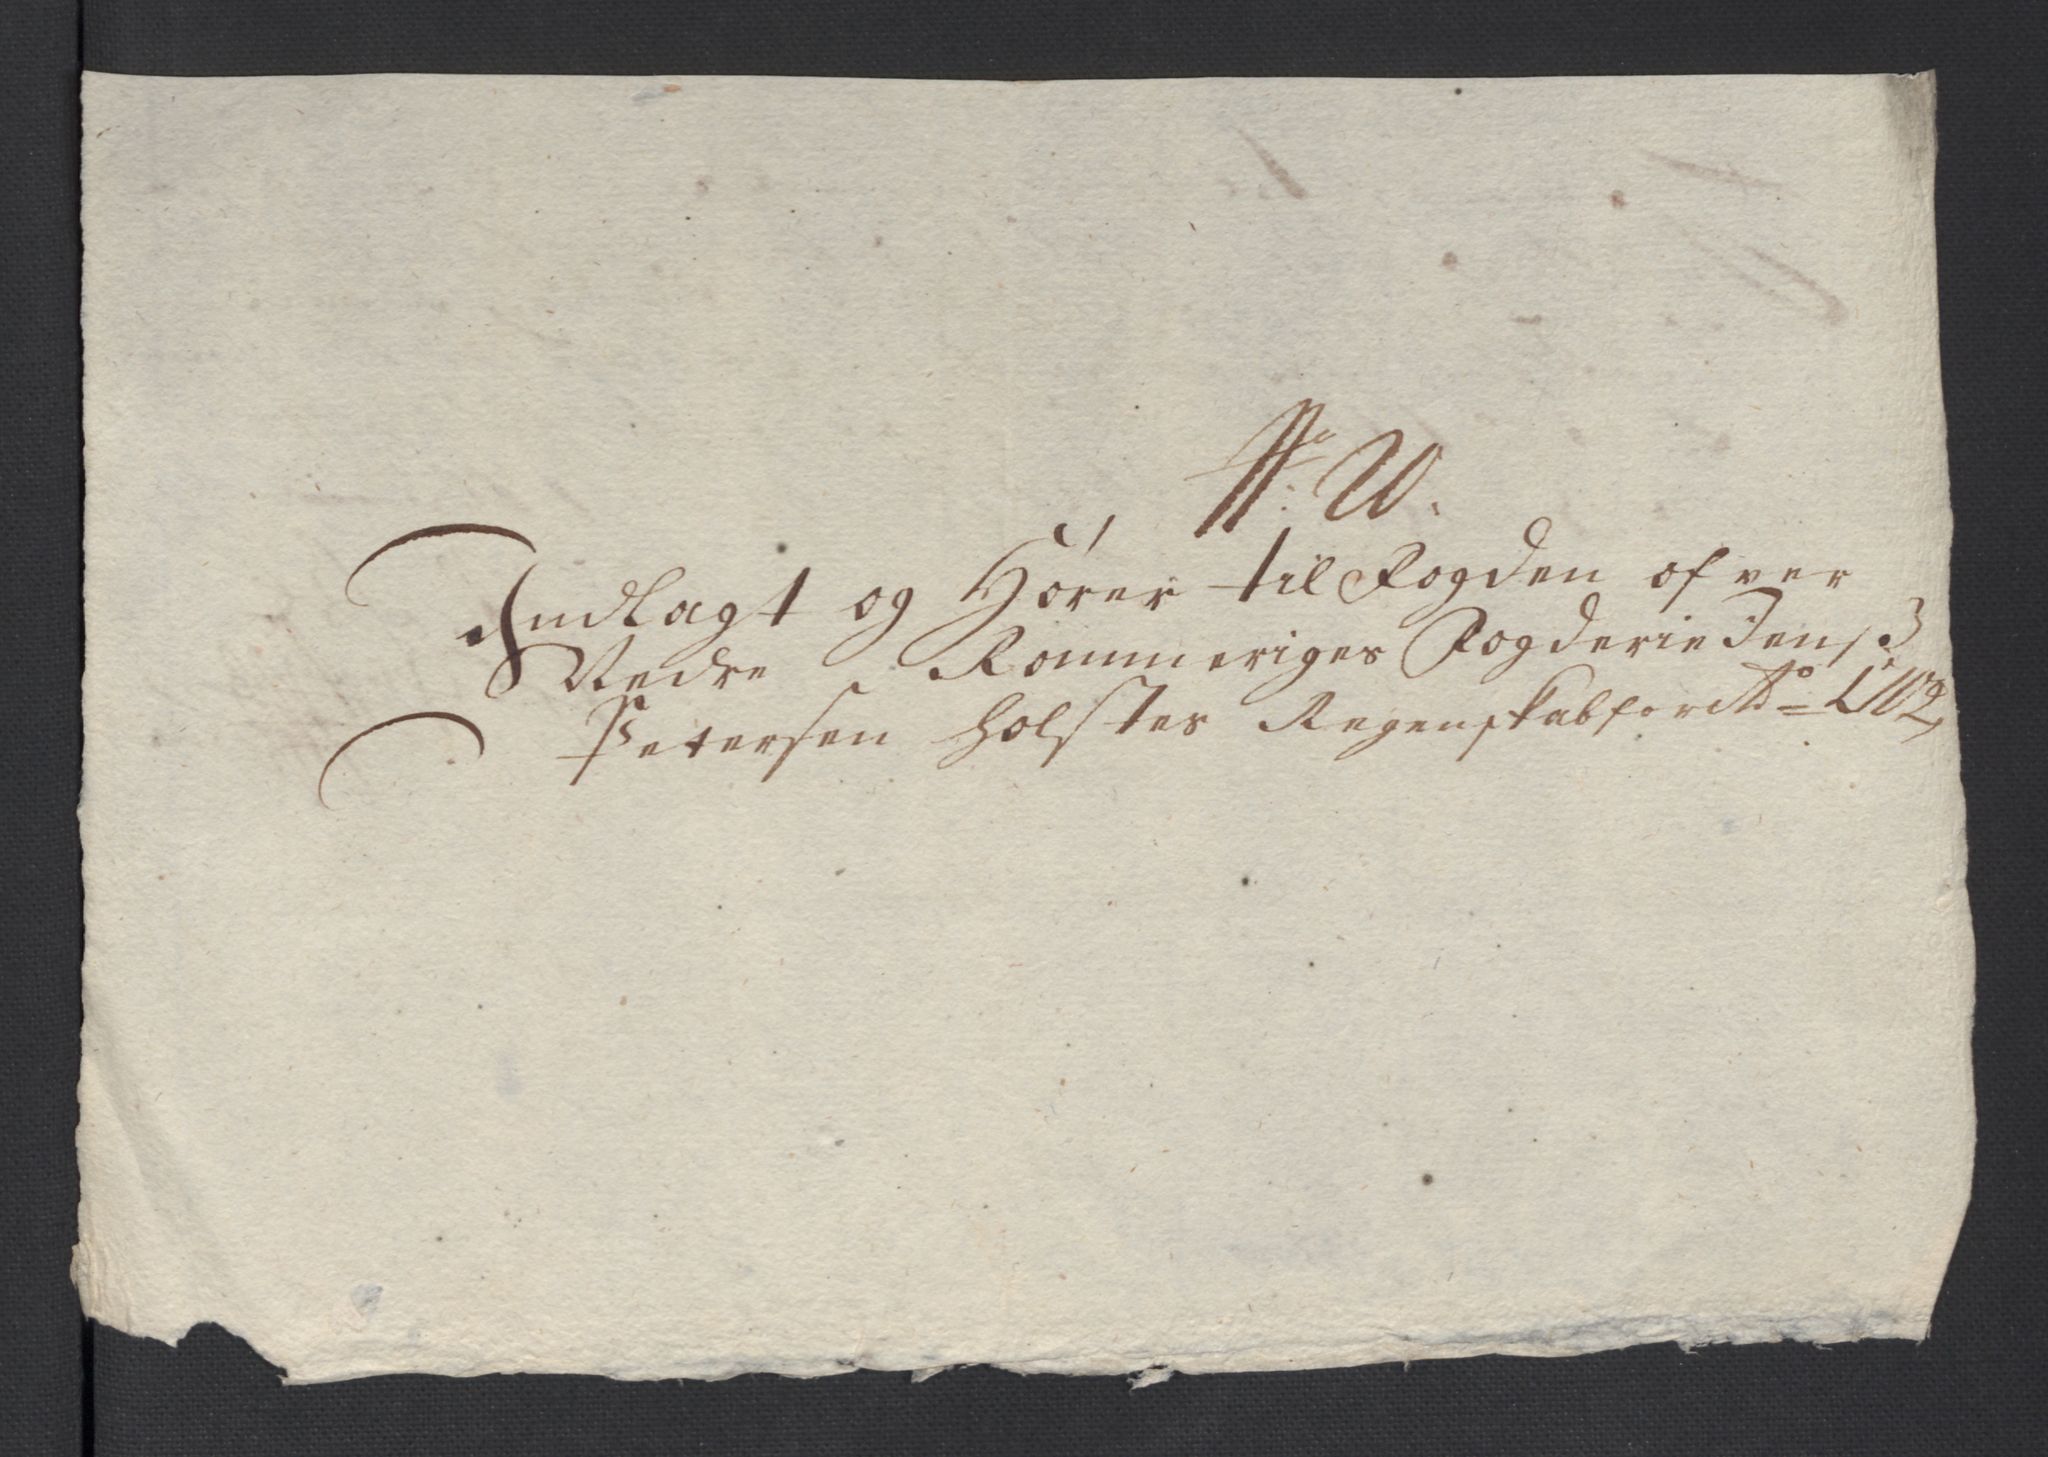 No: W.
Indlagt og Hörer til Fogden ofver
Nedre Rommeriges Fogderie Jens
Petersen Holstes Regenskab for Ao 1702